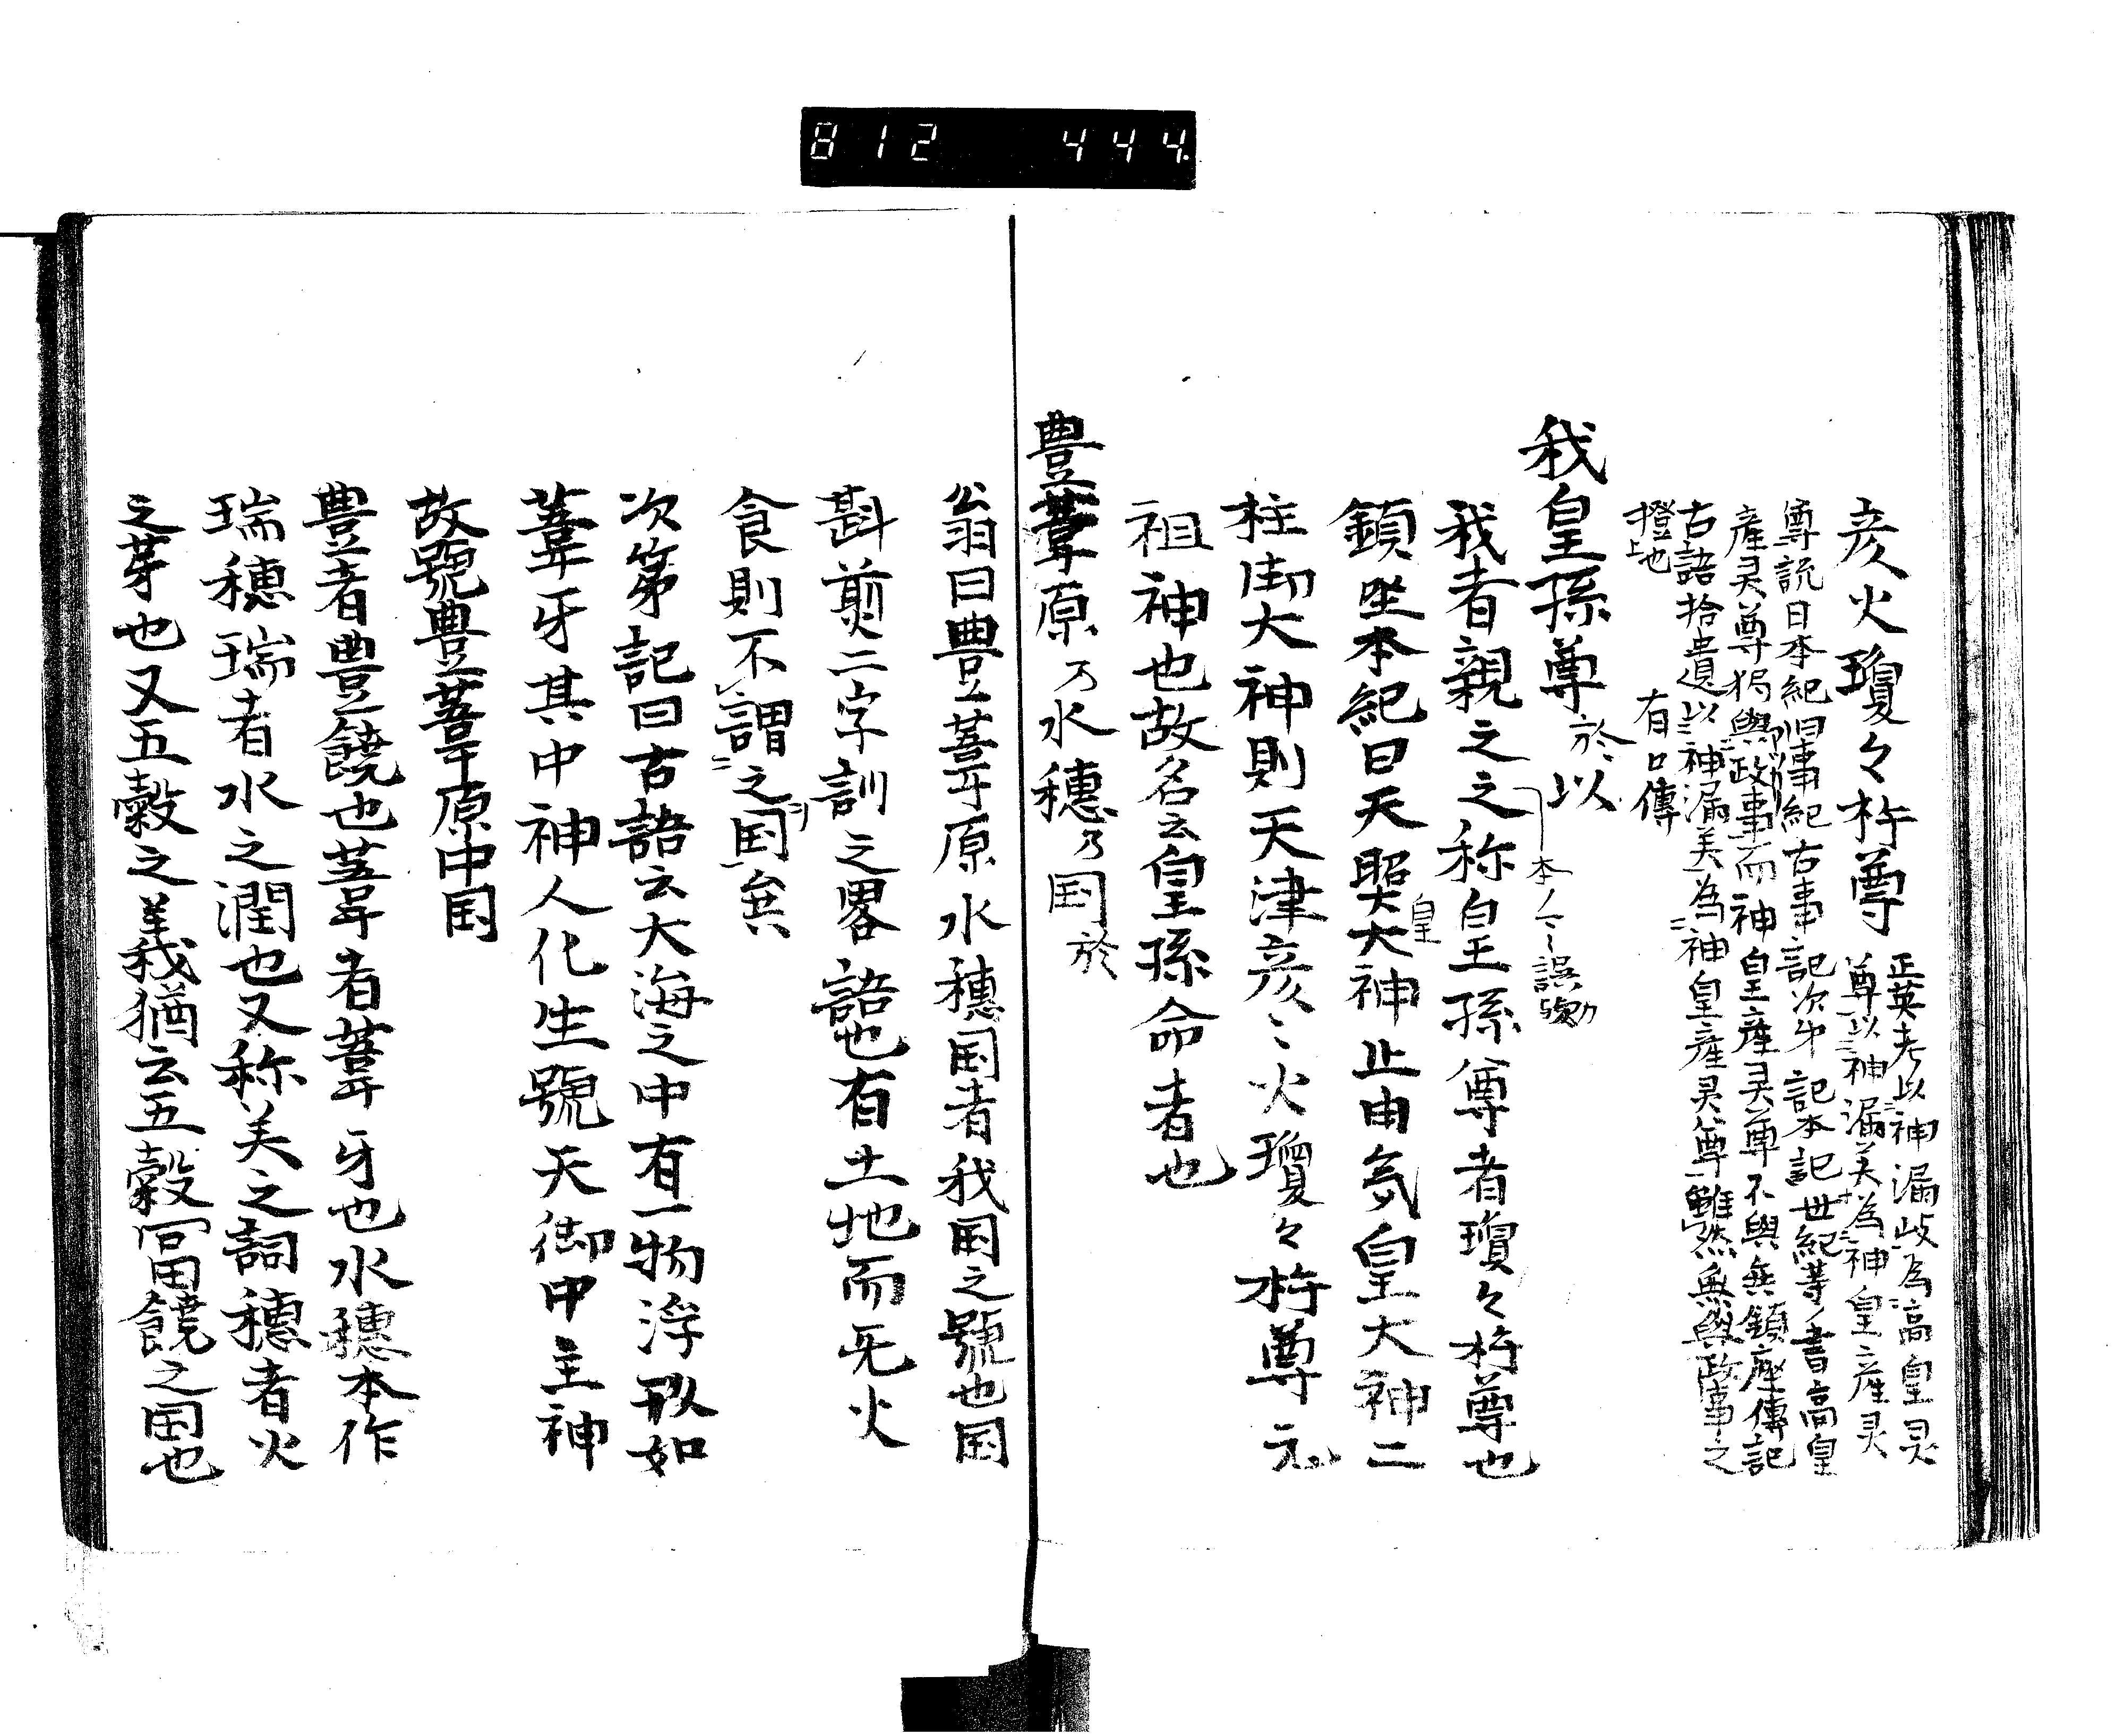 812 444
彦火瓊々杵尊
正英考以神漏岐為高皇灵
尊以神漏美為神皇産灵
尊説日本紀旧事紀古事記次第記本記世紀等ノ書高皇
産灵尊猲與政事而神皇産灵尊不與無鎮座傳記
古語拾遺以神漏美為神皇産灵尊雖然無與政事之
證也 有口傳
我皇孫尊於以
本ノ令誤歟
我者親之之称皇孫尊者瓊々杵尊也
鎮坐本紀曰天照大神止由気皇大神二
皇
柱御大神則天津彦々火瓊々杵尊元
祖神也故名云皇孫命者也
豊葦原乃水穗乃国於
翁曰豊葦原水穗国者我国之號也国
斟煎二字訓之畧語也有土地而旡火
食則不謂之国矣
次第記曰古語云大海之中有一物浮形如
葦牙其中神人化生號天御中主神
故號豊葦原中国
豊者豊饒也葦者葦牙也水穗本作
瑞穗瑞者水之潤也又称美之詞穗者火
之芽也又五穀之義猶云五穀冨饒之国也